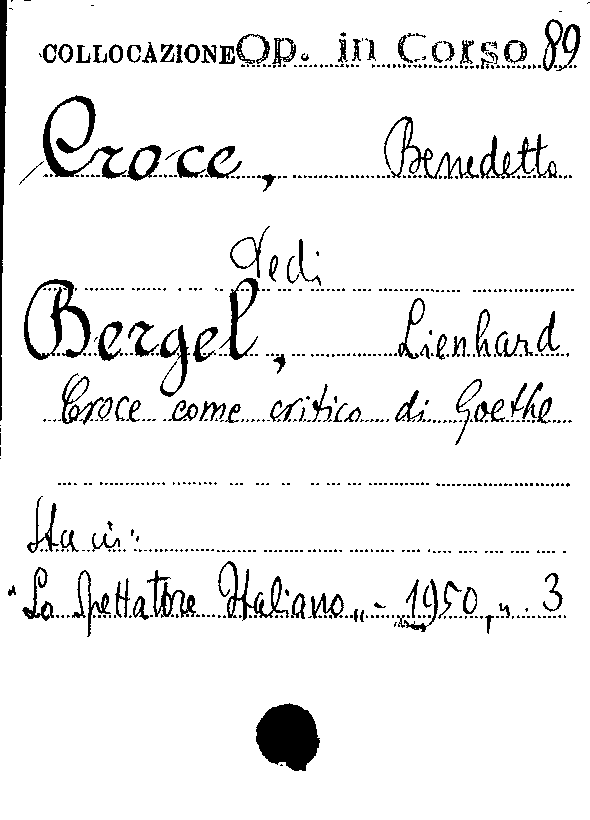 COLLOCAZIONE Op. in Corso 89
Croce, Benedetto
Vedi
Bergel, Lienhard
Croce come critico di Goethe
Sta in:
"Lo Spettatore Italiano" - 1950, n. 3